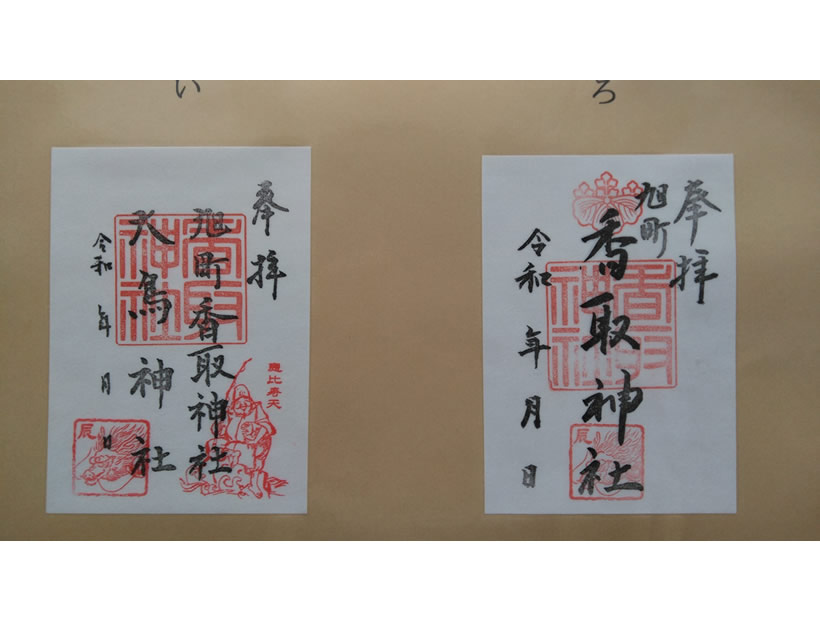 い
奉拝
旭町香取神社
大鳥神社
令和 年 月 日
香取神社
恵比寿天
辰
ろ
奉拝
旭町
香取神社
令和 年 月 日
香取神社
辰